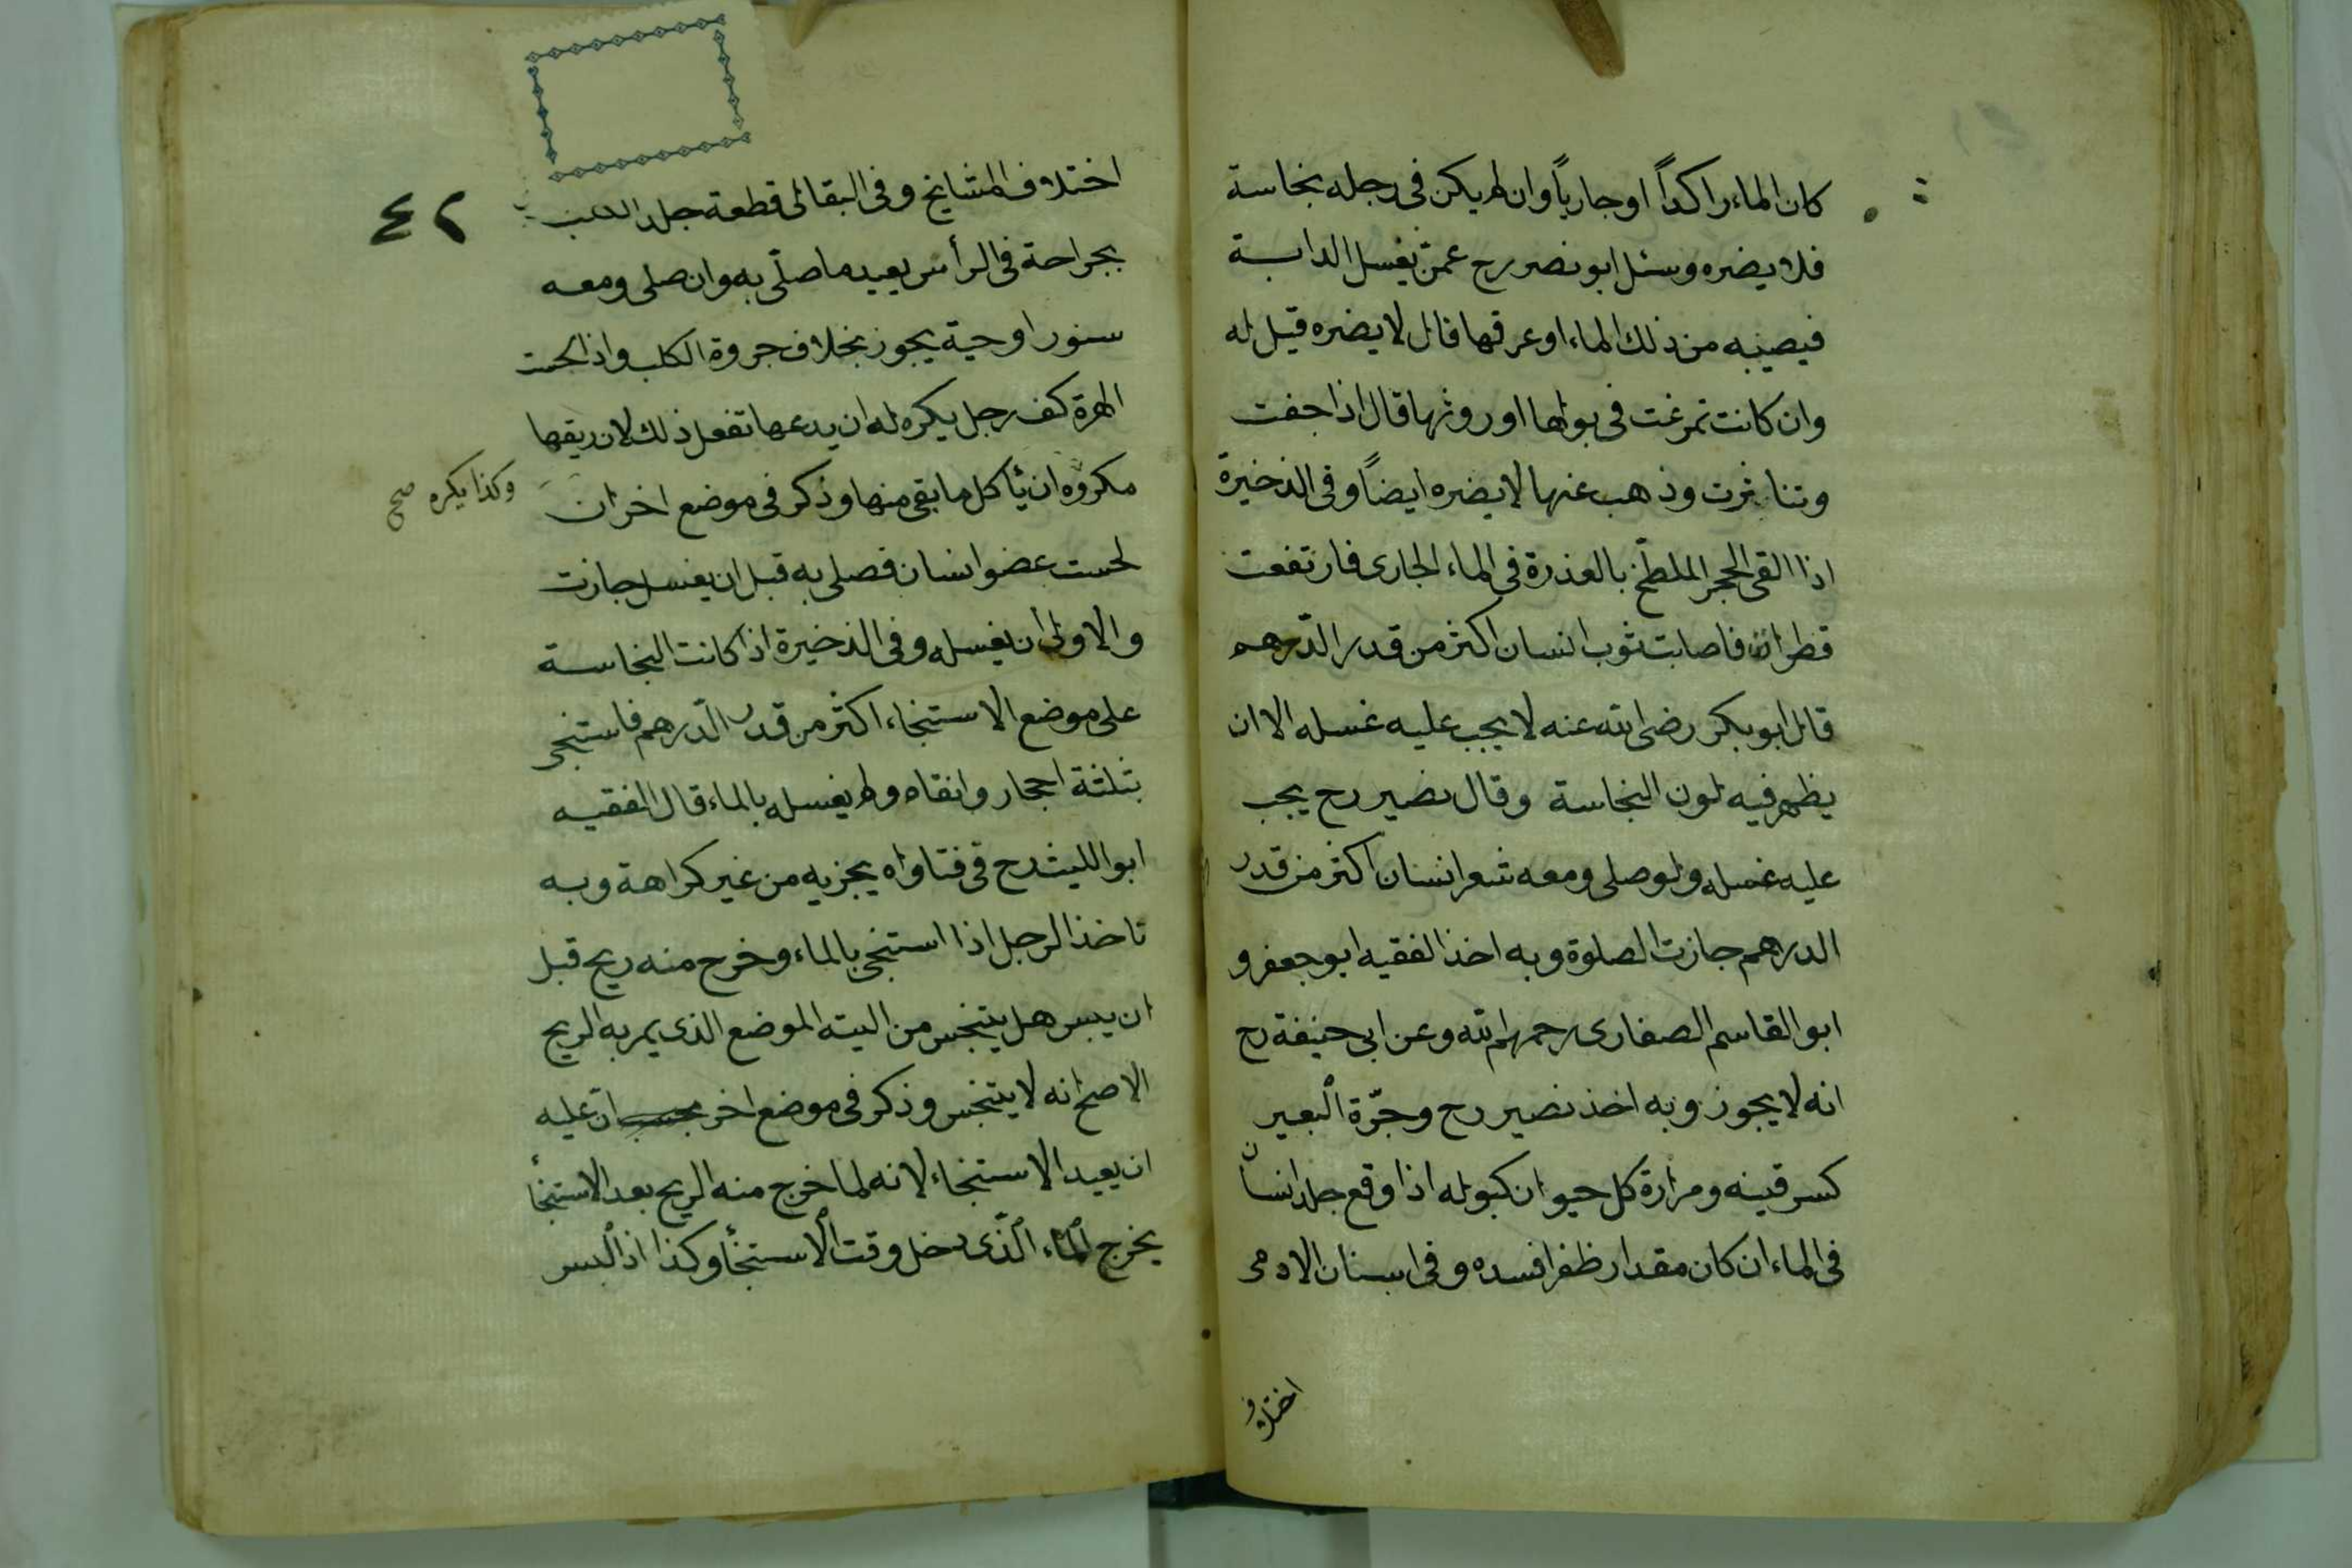 كان الماء راكداً او جارياً وان لم يكن فى رجله نجاسة
فلا يضره وسئل ابو نصر رح عمن يغسل الدابة
فيصيبه من ذلك الماء او عرقها قال لا يضره قيل له
وان كانت تمرغت فى بولها او روثها قال اذا جفت
وتناثرت وذهب عنها لا يضره ايضاً وفى الذخيرة
اذا القى الحجر الملطخ بالعذرة فى الماء الجارى فارتفعت
قطرات فاصابت ثوب انسان اكثر من قدر الدّرهم
قال ابو بكر رضى الله عنه لا يجب عليه غسله الا ان
يظهر فيه لون النجاسة وقال نصير رح يجب
عليه غسله ولو صلى ومعه شعر انسان اكثر من قدر
الدرهم جازت الصلوة وبه اخذ الفقيه ابو جعفر و
ابو القاسم الصفارى رحمهم الله وعن ابى حنيفة رح
انه لا يجوز وبه اخذ نصير رح وجرّة البعير
كسرقينه ومرارة كل حيوان كبوله اذا وقع جلد انسان
فى الماء ان كان مقدار ظفر افسده وفى اسنان الادمى
اختلاف
٤٢
اختلاف المشايخ وفى البقالى قطعة جلد
بجراحة فى الرأس يعيد ما صلّى به وان صلى ومعه
سنور او حية يجوز بخلاف جروة الكلب واذا لحست
الهرة كف رجل يكره له ان يدعها تفعل ذلك لان ريقها
مكروه ان يأكل ما بقى منها وذكر فى موضع اخر ان
وكذا يكره صح
لحست عضو انسان فصلى به قبل ان يغسل جازت
والاولى ان يغسله وفى الذخيرة اذا كانت النجاسة
على موضع الاستنجاء اكثر من قدر الدّرهم فاستنجى
بثلثة احجار وانقاه ولم يغسله بالماء قال الفقيه
ابو الليث رح فى فتاواه يجزيه من غير كراهة وبه
ناخذ الرجل اذا استنجى بالماء وخرج منه ريح قبل
ان ييبس هل يتنجس من اليته الموضع الذى يمر به الريح
الاصح انه لا يتنجس وذكر فى موضع اخر انّ عليه
ان يعيد الاستنجاء لانه لما خرج منه الريح بعد الاستنجأ
يخرج الماء الّذى دخل وقت الاستنجأ وكذا اذا لبس